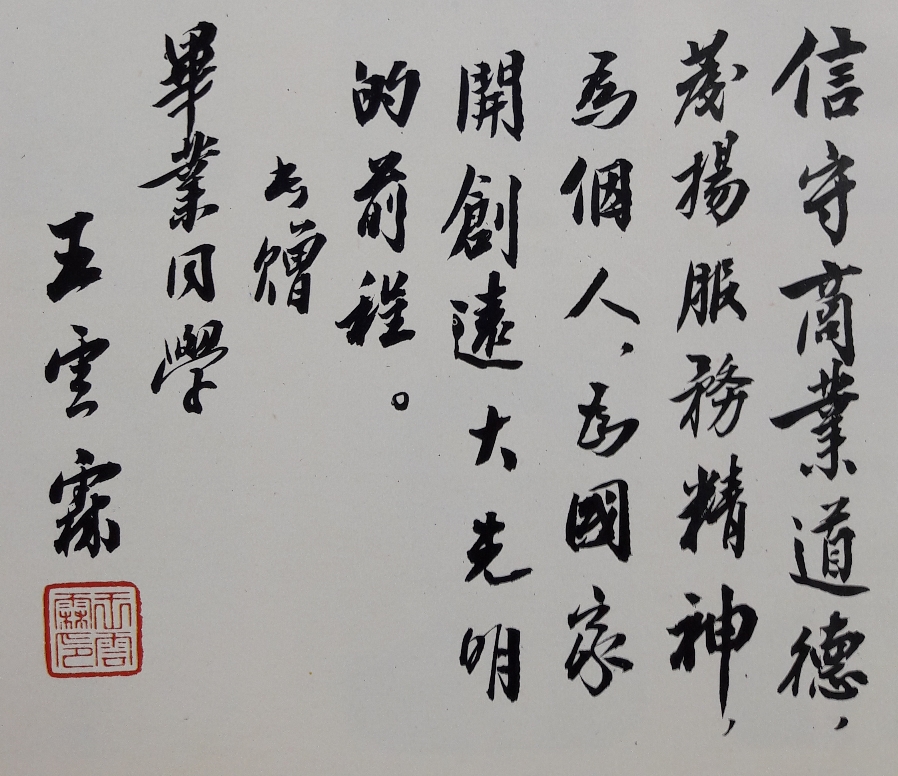 信守商業道德，
發揚服務精神，
為個人，為國家
開創遠大光明
的前程。
書贈
畢業同學
王雲霖
王雲霖印